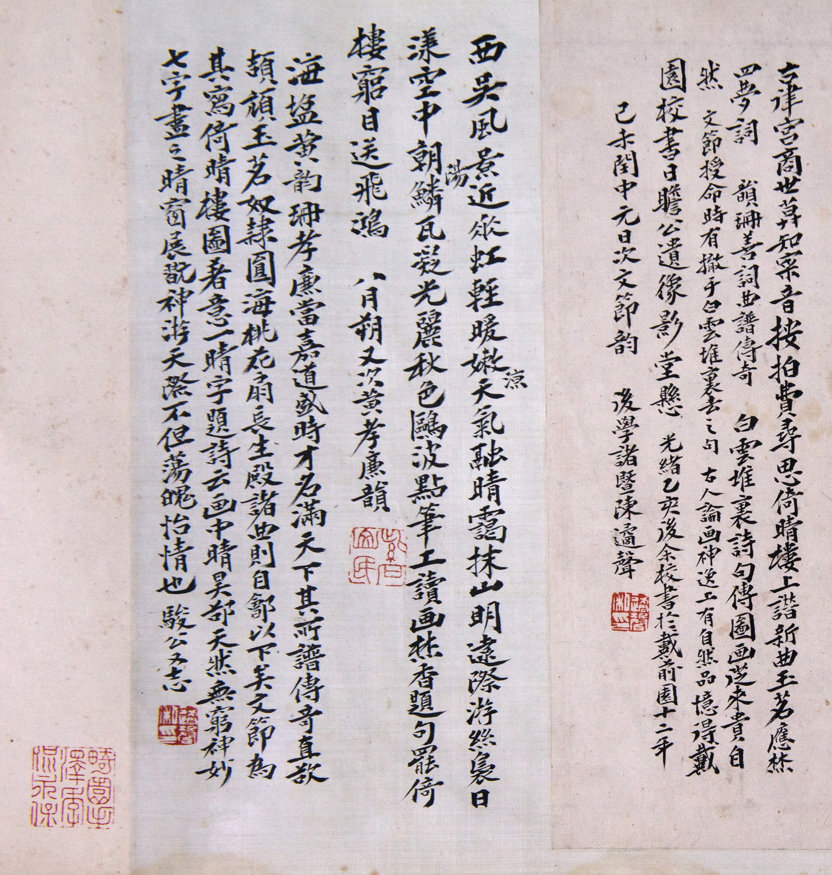 古津宮商世莫知案音按拍費尋思倚晴樓上譜新曲玉茗應慙
四夢詞 韻珊善詞曲譜傳奇 白雲堆裏詩句傳圖画芝來貴自
然 文節授命時有撤手白雲堆裏去之句 古人論画神逸上有自然品 憶得戴
園校書日瞻公遺像影堂懸 光緒乙亥後余校書於戴前園十二年
己未閏中元日次文節韵 後學諸暨陳遹聲
西吳風景近蘋虹輕暖嫩涼天氣融晴靄抹山明遠際游絲裊日
漾空中朝湯鱗瓦凝光麗秋色鷗波點筆工讀画焚香題句罷倚
樓窮目送飛鴻 八月朔又次黃孝廉韻
海盐黃韵珊孝廉當嘉道盛時才名滿天下其所譜傳奇直欲
頡頏玉茗奴隸圓海桃花扇長生殿諸曲則自鄶以下矣文節為
其寫倚晴樓圖著意一晴字題詩云画中晴昊郤天然無窮神妙
七字盡之晴窗展翫神游天際不但蕩魄怡情也 駿公又志